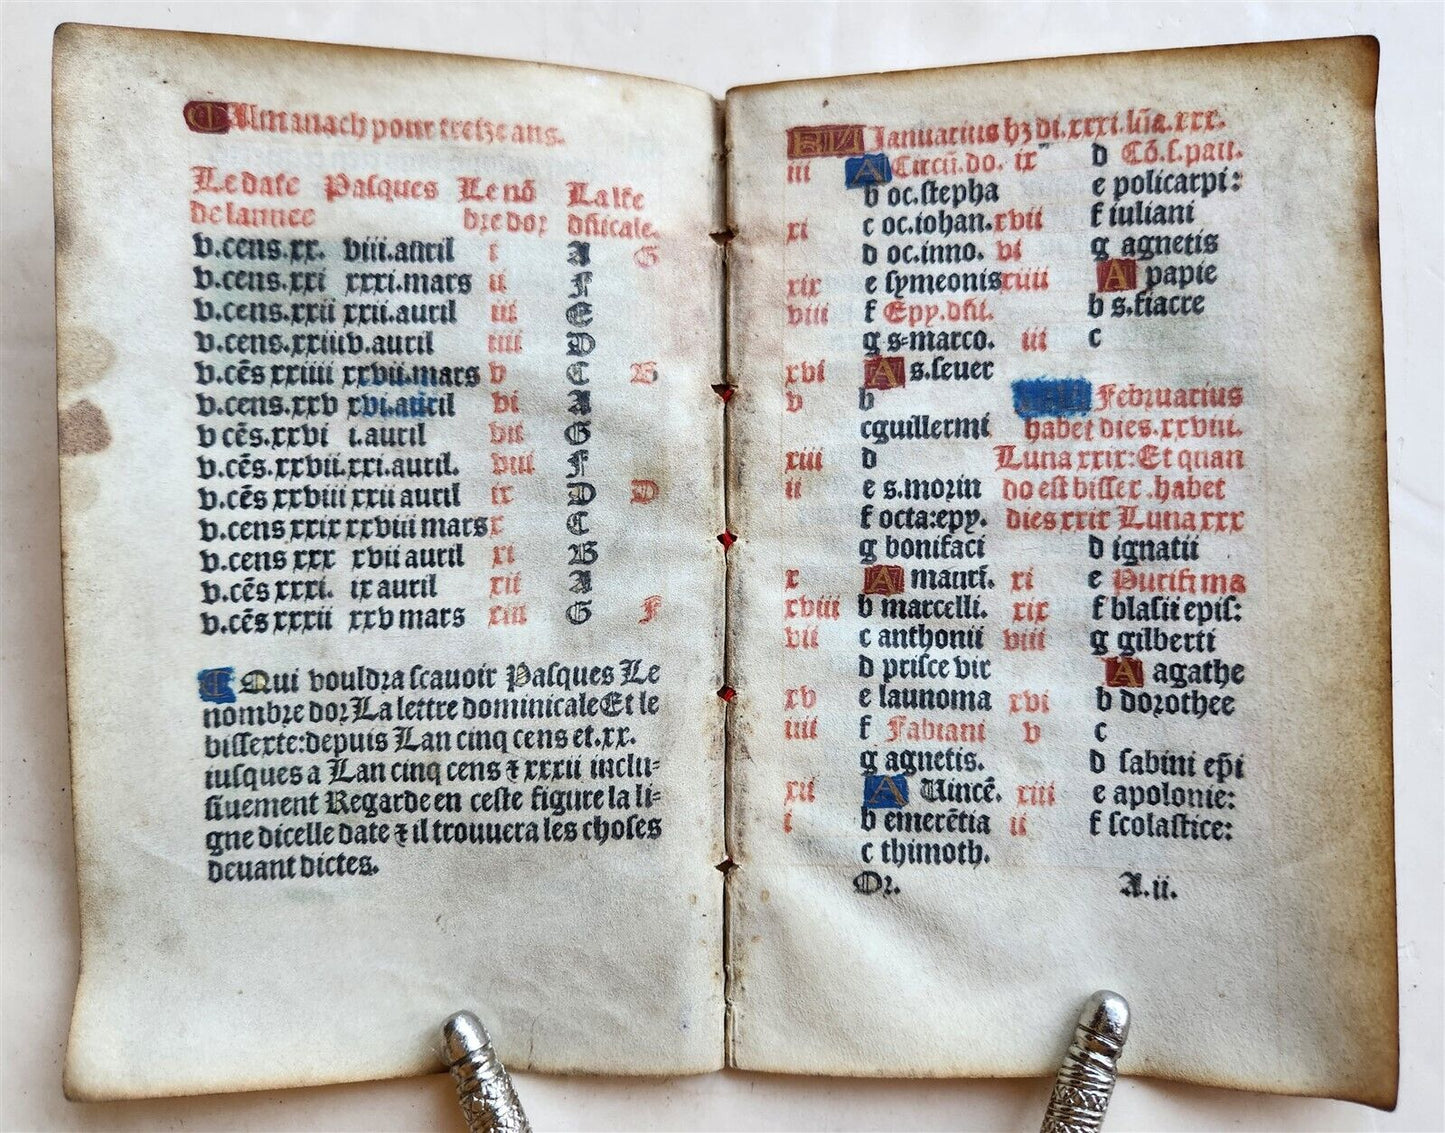 Almanach pour treize ans.
Le date Pasques Le nō La lr̄e
de lannee bre dor dn̄icale.
v.cens.xx. viii.auril i A G
v.cens.xxi xxxi.mars ii F
v.cens.xxii xxii.auril iii E
v.cens.xxiii v.auril iiii D
v.cēs xxiiii xxvii.mars v C B
v.cens.xxv xvi.auril vi A
v cēs.xxvi i.auril vii G
v.cēs.xxvii.xxi.auril. viii F
v.cēs xxviii xxii auril ix D D
v.cens xxix xxviii mars x C
v.cens xxx xvii auril xi B
v.cēs xxxi. ix auril xii A
v.cēs xxxii xxv mars xiii G F
Qui vouldra scauoir Pasques Le
nombre dor La lettre dominicale Et le
bissexte:depuis Lan cinq cens et.xx.
iusques a Lan cinq cens ⁊ xxxii inclu⸗
siuement Regarde en ceste figure la li⸗
gne dicelle date ⁊ il trouuera les choses
deuant dictes.
KL Ianuarius hʒ di.xxxi.lūa.xxx.
iii A Circū.do.
b oc.stepha
xi c oc.iohan.
d oc.inno.
xix e symeonis
viii f Epy.dn̄i.
g s⸗marco.
xvi A s.seuer
v b
c guillermi
xiii d
ii e s.morin
f octa:epy.
g bonifaci
x A mauri.
xviii b marcelli.
vii c anthonii
d prisce vir
xv e launoma
iiii f Fabiani
g agnetis.
xii A Uincē.
i b emerētia
c thimoth.
ix d Cō.s.pau.
e policarpi:
xvii f iuliani
vi g agnetis
xiiii A papie
b s.fiacre
iii c
Februarius
habet dies.xxviii.
Luna xxix:Et quan
do est bissex.habet
dies xxix Luna xxx
d ignatii
xi e Purifi ma
xix f blasii epis:
viii g gilberti
A agathe
xvi b dorothee
v c
d sabini ep̄i
xiii e apolonie:
ii f scolastice:
Or. A.ii.